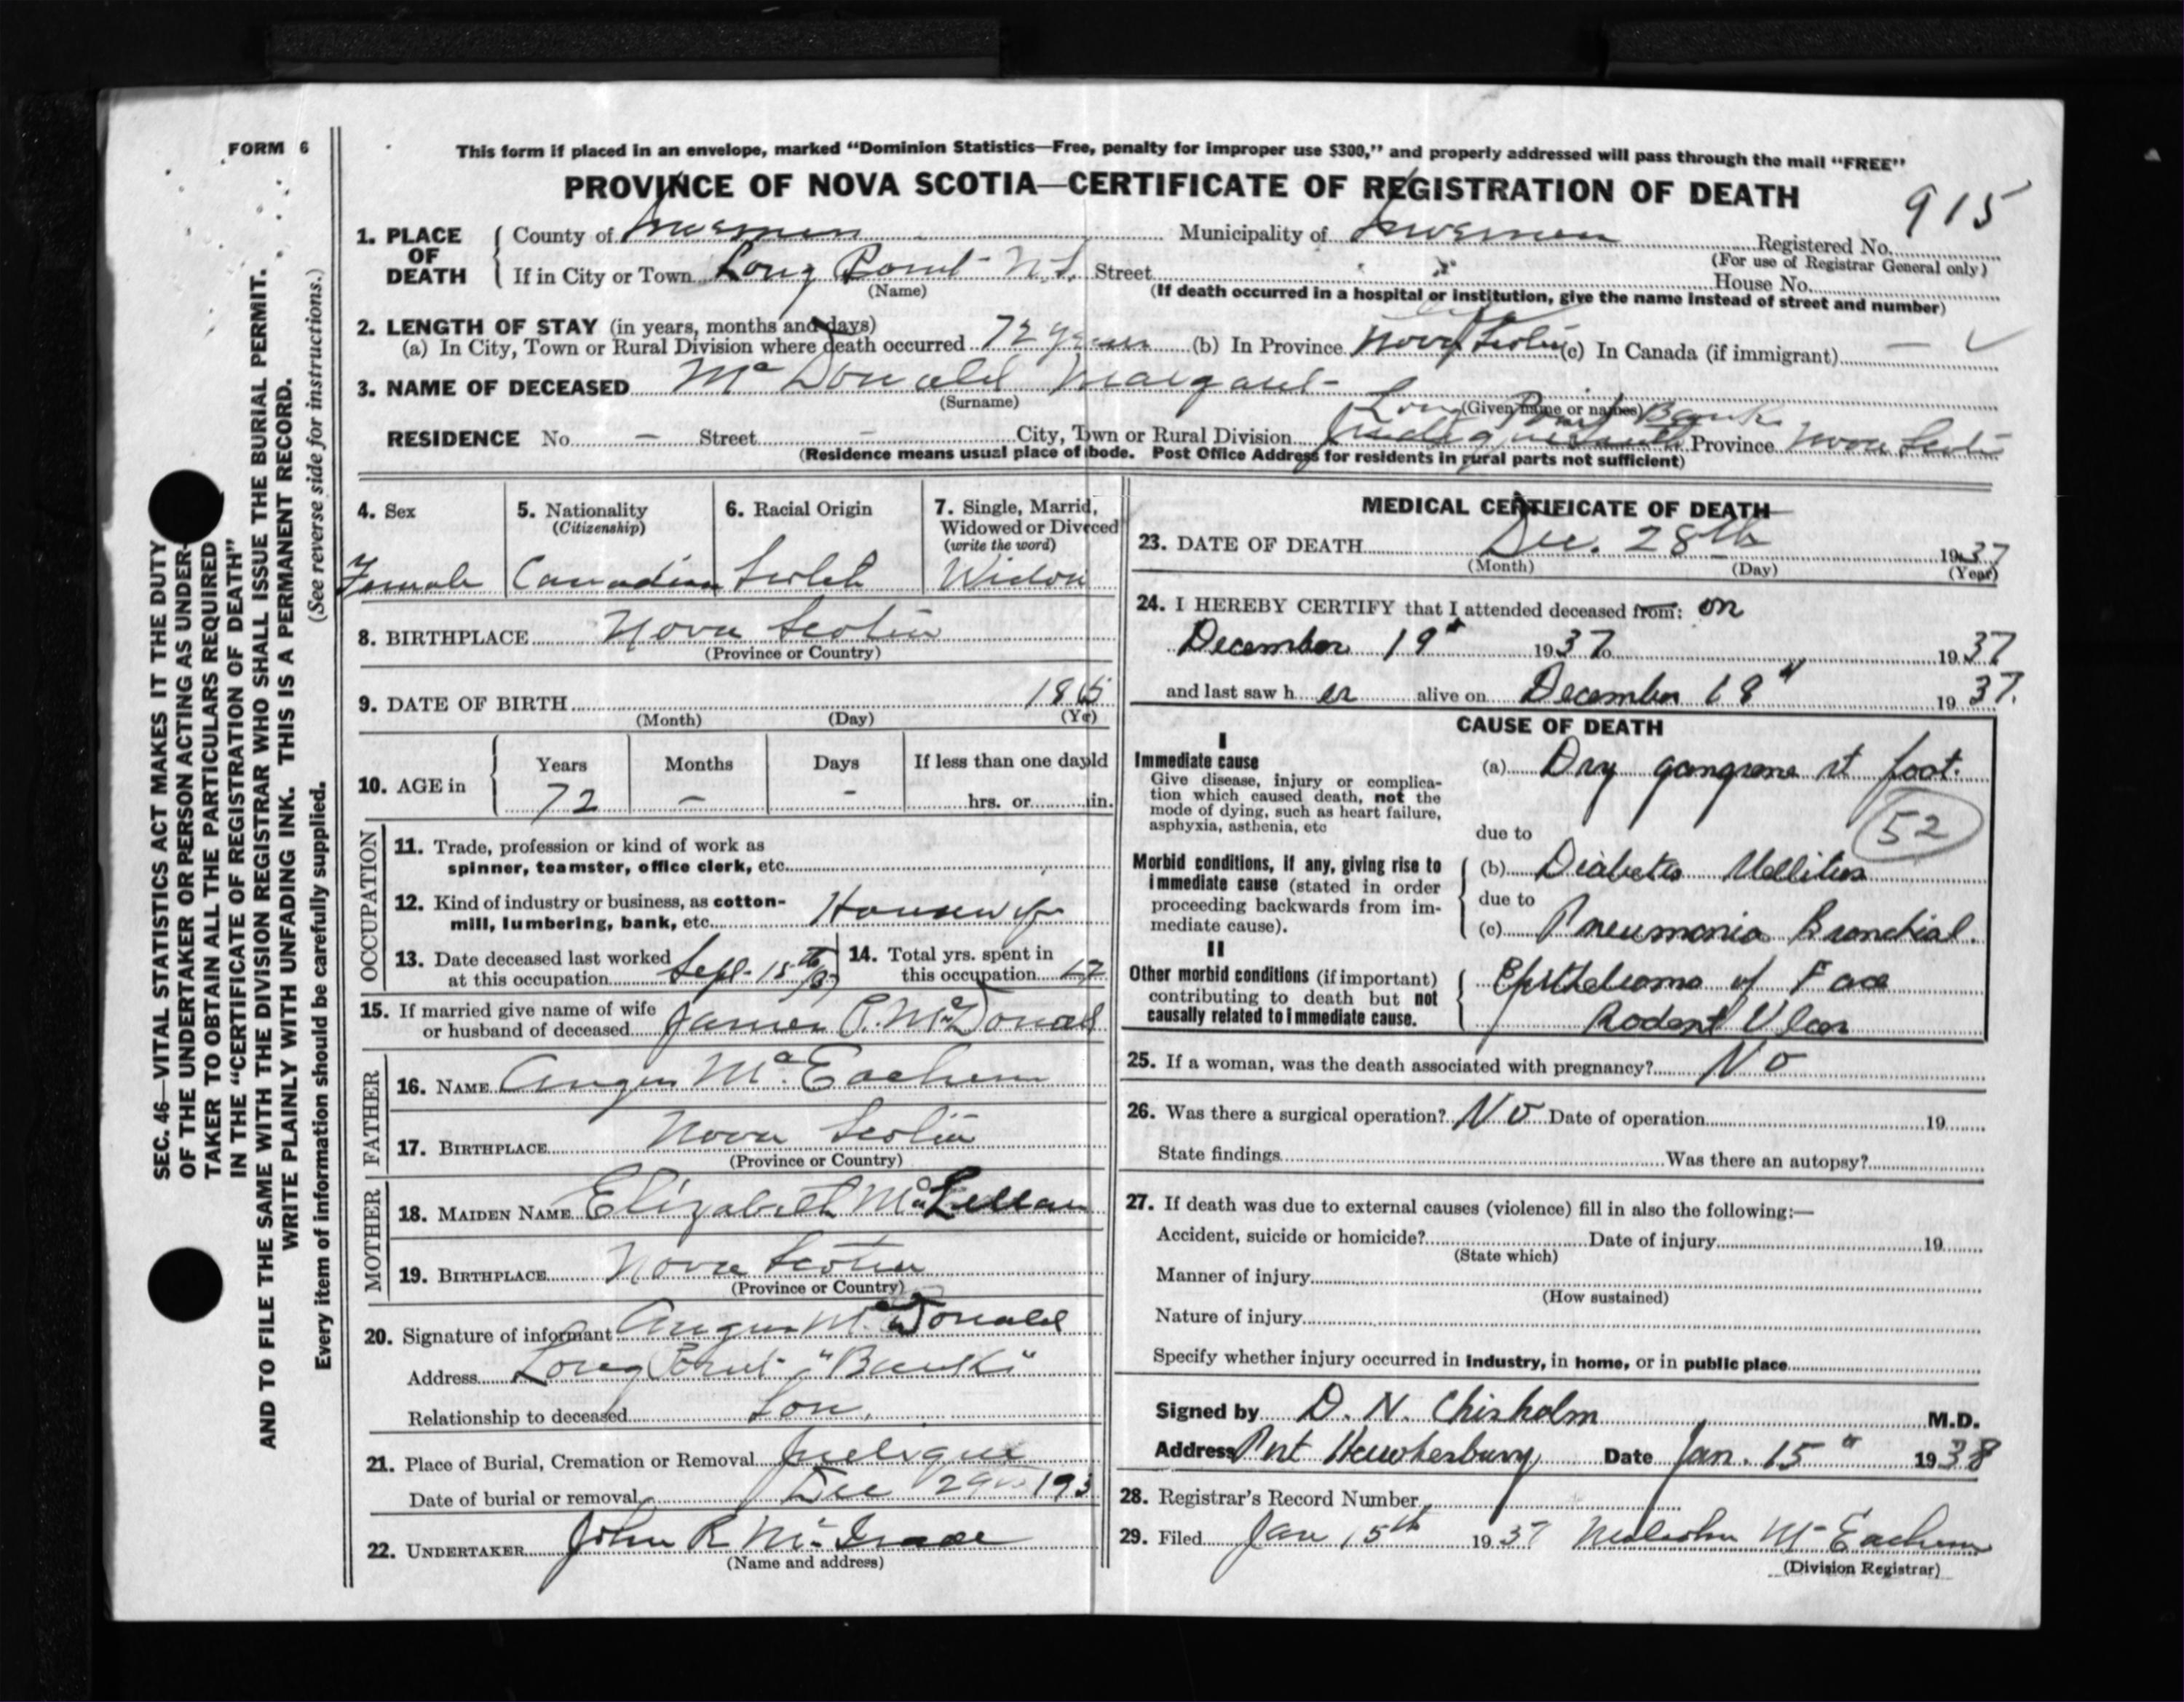 FORM 6
This form if placed in an envelope, marked “Dominion Statistics—Free, penalty for improper use $300,” and properly addressed will pass through the mail “FREE”
PROVINCE OF NOVA SCOTIA—CERTIFICATE OF REGISTRATION OF DEATH
915
1. PLACE OF DEATH County of Inverness Municipality of Inverness Registered No.
(For use of Registrar General only)
If in City or Town Long Point N.S. Street House No.
(Name) (If death occurred in a hospital or institution, give the name instead of street and number)
2. LENGTH OF STAY (in years, months and days)
(a) In City, Town or Rural Division where death occurred 72 years (b) In Province Nova Scotia (c) In Canada (if immigrant) —
3. NAME OF DECEASED McDonald Margaret
(Surname) (Given name or names)
Long Point Bank
RESIDENCE No. — Street — City, Town or Rural Division Judique Province Nova Scotia
(Residence means usual place of bode. Post Office Address for residents in rural parts not sufficient)
4. Sex 5. Nationality (Citizenship) 6. Racial Origin 7. Single, Marrid, Widowed or Divrced (write the word)
Female Canadian Scotch Widow
8. BIRTHPLACE Nova Scotia
(Province or Country)
9. DATE OF BIRTH 1865
(Month) (Day) (Yr)
10. AGE in Years Months Days If less than one day ld
72 – - hrs. or in.
OCCUPATION
11. Trade, profession or kind of work as
spinner, teamster, office clerk, etc.
12. Kind of industry or business, as cotton-
mill, lumbering, bank, etc. Housewife
13. Date deceased last worked
at this occupation Sept 15th/37
14. Total yrs. spent in
this occupation
15. If married give name of wife
or husband of deceased James R. McDonald
FATHER
16. NAME Angus McEachern
17. BIRTHPLACE Nova Scotia
(Province or Country)
MOTHER
18. MAIDEN NAME Elizabeth McLellan
19. BIRTHPLACE Nova Scotia
(Province or Country)
20. Signature of informant Angus McDonald
Address Long Point "Bank"
Relationship to deceased Son.
21. Place of Burial, Cremation or Removal Judique
Date of burial or removal Dec 29th 193
22. UNDERTAKER John R
(Name and address)
MEDICAL CERTIFICATE OF DEATH
23. DATE OF DEATH Dec. 28th 1937
(Month) (Day) (Year)
24. I HEREBY CERTIFY that I attended deceased from: on
December 19" 1937 to 1937
and last saw her alive on December 18" 1937.
CAUSE OF DEATH
I
Immediate cause
Give disease, injury or complica-
tion which caused death, not the
mode of dying, such as heart failure,
asphyxia, asthenia, etc
(a) Dry gangrene rt foot.
52
due to
Morbid conditions, if any, giving rise to
immediate cause (stated in order
proceeding backwards from im-
mediate cause).
(b) Diabetes Mellitus
due to
(c) Pneumonia Bronchial.
II
Other morbid conditions (if important)
contributing to death but not
causally related to immediate cause.
Epithelioma of Face
Rodent Ulcer
25. If a woman, was the death associated with pregnancy? No
26. Was there a surgical operation? No Date of operation 19
State findings Was there an autopsy?
27. If death was due to external causes (violence) fill in also the following:—
Accident, suicide or homicide? Date of injury 19
(State which)
Manner of injury
(How sustained)
Nature of injury
Specify whether injury occurred in industry, in home, or in public place
Signed by D. N. Chisholm M.D.
Address Port Hawkesbury Date Jan. 15" 1938
28. Registrar's Record Number
29. Filed Jan 15th 1937 Malcolm McEachern
(Division Registrar)
SEC. 46—VITAL STATISTICS ACT MAKES IT THE DUTY
OF THE UNDERTAKER OR PERSON ACTING AS UNDER-
TAKER TO OBTAIN ALL THE PARTICULARS REQUIRED
IN THE “CERTIFICATE OF REGISTRATION OF DEATH”
AND TO FILE THE SAME WITH THE DIVISION REGISTRAR WHO SHALL ISSUE THE BURIAL PERMIT.
WRITE PLAINLY WITH UNFADING INK. THIS IS A PERMANENT RECORD.
Every item of information should be carefully supplied. (See reverse side for instructions.)